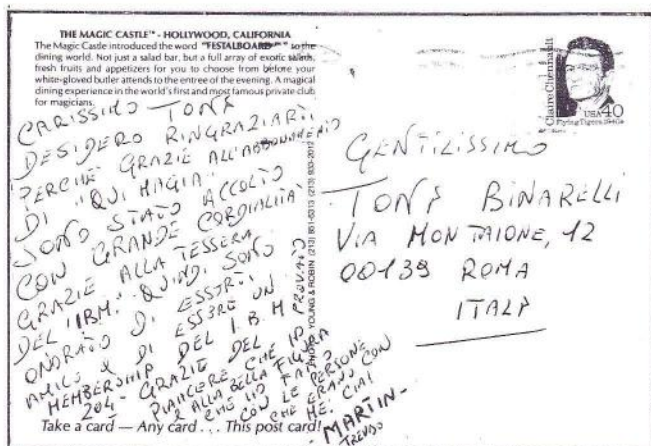 THE MAGIC CASTLE™ - HOLLYWOOD, CALIFORNIA
The Magic Castle introduced the word "FESTALBOARD" to the
dining world. Not just a salad bar, but a full array of exotic salads,
fresh fruits and appetizers for you to choose from before your
white-gloved butler attends to the entree of the evening. A magical
dining experience in the world's first and most famous private club
for magicians.
CARISSIMO TONY
DESIDERO RINGRAZIARTI
PERCHÈ GRAZIE ALL'ABBONAMENTO
DI "QUI MAGIA"
SONO STATO ACCOLTO
CON GRANDE CORDIALITÀ
GRAZIE ALLA TESSERA
DEL IBM. QUINDI SONO
ONORATO DI ESSERTI
AMICO & DI ESSERE UN
MEMBERSHIP DEL I.B.M
204 - GRAZIE DEL
PIACERE CHE HO PROVATO
E ALLA BELLA FIGURA
CHE HO FATTO
CON LE PERSONE
CHE ERANO CON
ME. CIAI
MARTIN -
Take a card — Any card . . . This post card!
YOUNG & ROBIN (213) 851-5313 (213) 933-2012
Claire Chennault
Flying Tigers 1940s
USA 40
GENTILISSIMO
TONY BINARELLI
VIA MONTAIONE, 12
00139 ROMA
ITALY